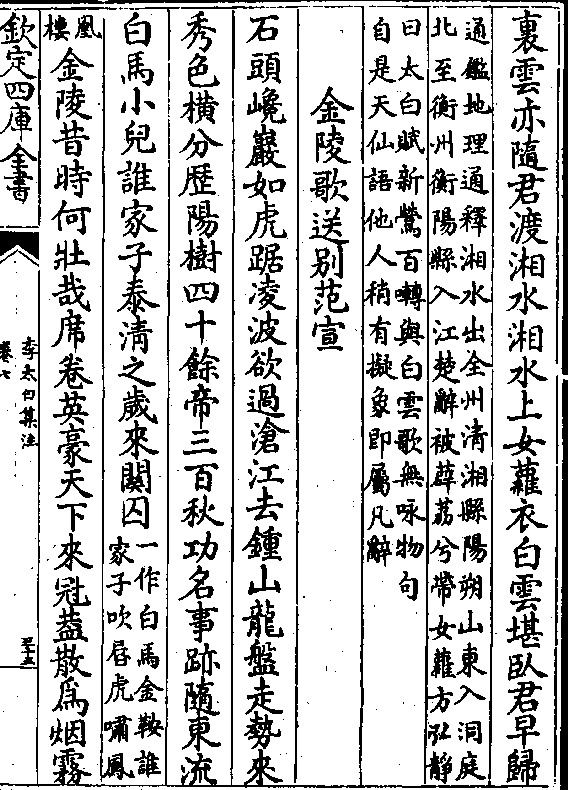 裏雲亦隨君渡湘水湘水上女蘿衣白雲堪臥君早歸
通鑑地理通釋湘水出全州清湘縣陽朔山東入洞庭
北至衡州衡陽縣入江楚辭被薜荔兮帶女蘿方弘靜
曰太白賦新鶯百囀與白雲歌無咏物句
自是天仙語他人稍有擬象即屬凡辭
金陵歌送别范宣
石頭巉巖如虎踞凌波欲過滄江去鍾山龍盤走勢來
秀色橫分歴陽樹四十餘帝三百秋功名事跡隨東流
白馬小兒誰家子泰清之歲來關囚
一作白馬金鞍誰
家子吹唇虎嘯鳳
凰
樓
金陵昔時何壯哉席卷英豪天下來冠葢散為烟霧
欽定四庫全書
李太白集注
卷七
三十五